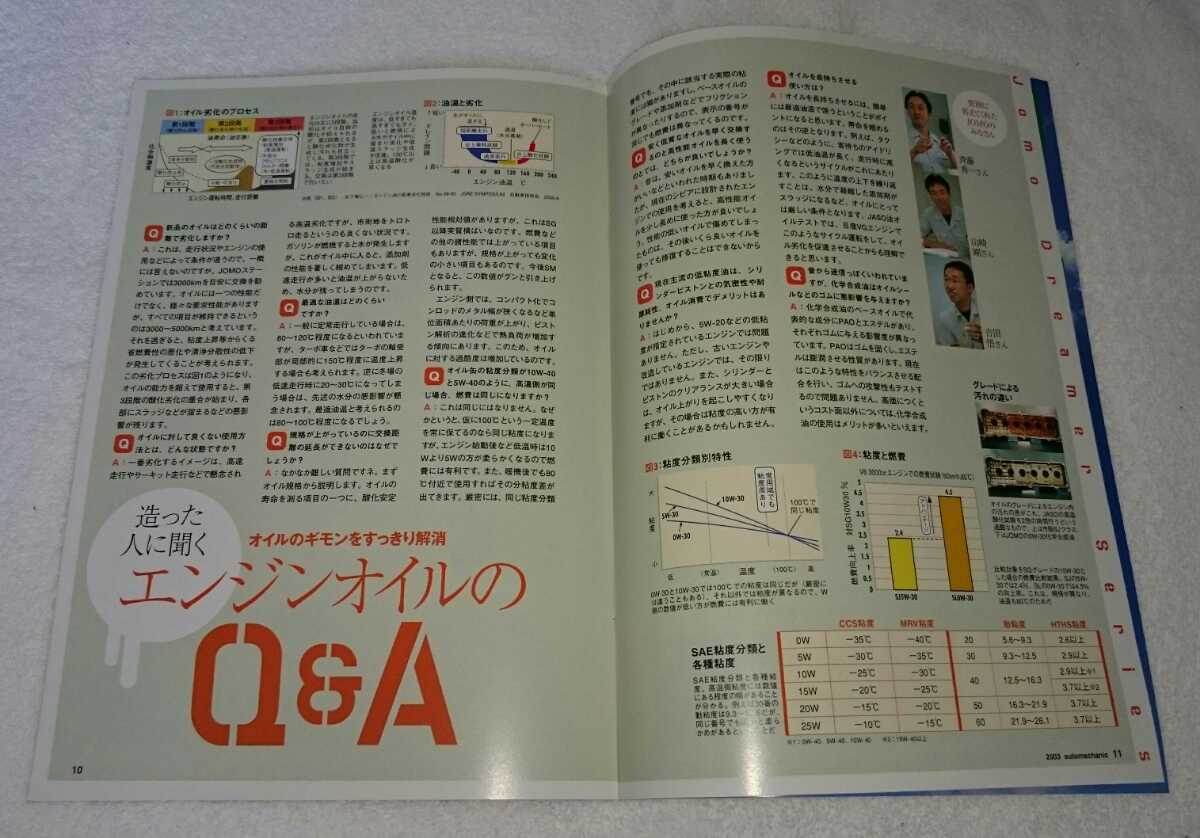 図1：オイル劣化のプロセス
第1段階
第2段階
第3段階
エンジン運転時間、走行距離
図2：油温と劣化
-40 0 40 80 120 160 200 240
エンジン油温 ℃
Q 新品のオイルはどのくらいの距
離で劣化しますか？
A：これは、走行状況やエンジンの使
用などによって条件が違うので、一概
には言えないのですが、JOMOステー
ションでは3000kmを目安に交換を勧
めています。オイルには一つの性能だ
けでなく、様々な要求性能があります
が、すべての項目が維持できるという
のは3000〜5000kmと考えています。
それを過ぎると、粘度上昇等からくる
省燃費性の悪化や清浄分散性の低下
が発生してくることが考えられます。
この劣化プロセスは図1のようになり、
オイルの能力を超えて使用すると、第
3段階の酸化劣化の重合が始まり、各
部にスラッジなどが溜まるなどの悪影
響が残ります。
Q オイルに対して良くない使用方
法とは、どんな状態ですか？
A：一番劣化するイメージは、高速
走行やサーキット走行などで懸念され
る高温劣化ですが、市街地をトロト
ロ走るというのも良くない状況です。
ガソリンが燃焼すると水が発生します
が、これがオイル中に入ると、添加剤
の性能を著しく縮めてしまいます。低
速走行が多いと油温が上がらないた
め、水分が残ってしまうのです。
Q 最適な油温はどのくらい
ですか？
A：一般に定常走行している場合は、
80〜120℃程度になるといわれていま
すが、ターボ車などではターボの軸受
部が局部的に150℃程度に温度上昇
する場合も考えられます。逆に冬場の
低速走行時に20〜30℃になってしま
う場合は、先述の水分の悪影響が懸
念されます。最適油温と考えられるの
は80〜100℃程度になるでしょう。
Q 規格が上がっているのに交換距
離の延長ができないのはなぜで
しょうか？
A：なかなか難しい質問ですネ。まず
オイル規格から説明します。オイルの
寿命を測る項目の一つに、酸化安定
性能相対値がありますが、これはSG
以降実質横ばいなのです。燃費など
の他の諸性能では上がっている項目
もありますが、規格が上がっても変化
の小さい項目もあるのです。今後SM
となると、この数値がグンと引き上げ
られます。
エンジン側では、コンパクト化でコ
ンロッドのメタル幅が狭くなるなど単
位面積あたりの荷重が上がり、ピスト
ン解析の進化などで熱負荷が増加す
る傾向にあります。このため、オイル
に対する過酷度は増加しているのです。
Q オイル缶の粘度分類が10W-40
と5W-40のように、高温側が同
じ場合、燃費は同じになりますか？
A：これは同じにはなりません。なぜ
かというと、仮に100℃という一定温度
を常に保てるのなら同じ粘度になりま
すが、エンジン始動後など低温時は10
Wより5Wの方が柔らかくなるので燃
費には有利です。また、暖機後でも80
℃付近で使用すればその分粘度差が
出てきます。厳密には、同じ粘度分類
造った
人に聞く
オイルのギモンをすっきり解消
エンジンオイルの
Q&A
10
番号でも、その中に該当する実際の粘
度には幅がありますし、ベースオイルの
グレードや添加剤などでフリクション
が異なったりするので、表示の番号が
同じでも燃費は異なってくるのです。
Q 安く低質なオイルを早く交換す
るのと高性能オイルを長く使う
のでは、どちらが良いでしょうか？
A：昔は、安いオイルを早く換えた方
がいいなどといわれた時期もありまし
たが、現在のシビアに設計されたエン
ジンでの使用を考えると、高性能オイ
ルを少し長めに使った方が良いでしょ
う。性能の低いオイルで傷めてしまっ
たものは、その後いくら良いオイルを
使っても修復することはできないから
です。
Q 現在主流の低粘度油は、シリ
ンダーピストンとの気密性や耐
摩耗性、オイル消費でデメリットはあ
りませんか？
A：はじめから、5W-20などの低粘
度が指定されているエンジンでは問題
がありません。ただし、古いエンジンや
改造しているエンジンでは、その限り
ではありません。また、シリンダーと
ピストンのクリアランスが大きい場合
は、オイル上がりを起こしやすくなり
ますが、その場合は粘度の高い方が有
利に働くことがあるかもしれません。
Q オイルを長持ちさせる
使い方は？
A：オイルを長持ちさせるには、簡単
には最適油温で使うということがポイ
ントになると思います。寿命を縮める
のはその逆となります。例えば、タク
シーなどのように、客待ちのアイドリ
ングでは低油温が長く、走行時に高
くなるというサイクルがこれにあたりま
す。このような温度の上下を繰り返
すことは、水分で縮糖した添加剤が
スラッジになるなど、オイルにとって
は厳しい条件となります。JASO油オ
イルテストでは、日産VGエンジンで
このようなサイクル運転をして、オイ
ル劣化を促進させることからも理解で
きると思います。
Q 昔から迷信っぽくいわれていま
すが、化学合成油はオイルシー
ルなどのゴムに悪影響を与えますか？
A：化学合成油のベースオイルで代
表的な成分にPAOとエステルがあり、
それぞれゴムに与える影響が異なっ
ています。PAOはゴムを固くし、エステ
ルは膨潤させる性質があります。現在
はこのような特性をバランスさせる配
合を行い、ゴムへの攻撃性もテストす
るので問題ありません。高価につくと
いうコスト面以外については、化学合成
油の使用はメリットが多いといえます。
質問に
答えてくれた
JOMOの
みなさん
斉藤
秀一さん
山崎
剛さん
吉田
悟さん
グレードによる
汚れの違い
Jomo Dreamer Series
図3：粘度分類別特性
大
粘度
小
5W-30
0W-30
10W-30
常用域でも
粘度差あり
100℃で
同じ粘度
低 （常温） 温度 （100℃） 高
0W-30と10W-30では100℃での粘度は同じだが（厳密に
は違うこともある）、それ以外では粘度が異なるので、W
側の数値が低い方が燃費には有利に働く
図4：粘度と燃費
燃費向上率 対SG10W30 %
5
4.5
4
3.5
3
2.5
2
1.5
1
0.5
0
2.4
4.5
SJ5W-30
SL0W-30
SAE粘度分類と
各種粘度
CCS粘度 MRV粘度 動粘度 HTHS粘度
0W −35℃ −40℃ 20 5.6〜9.3 2.6以上
5W −30℃ −35℃ 30 9.3〜12.5 2.9以上
10W −25℃ −30℃ 40 12.5〜16.3 2.9以上※1
15W −20℃ −25℃ 3.7以上※2
20W −15℃ −20℃ 50 16.3〜21.9 3.7以上
25W −10℃ −15℃ 60 21.9〜26.1 3.7以上
※1：0W-40、5W-40、10W-40 ※2：15W-40以上
2003 automechanic 11